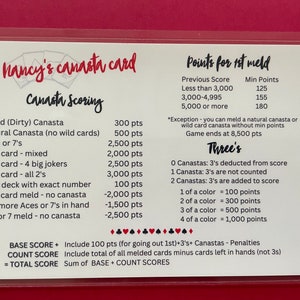 Nancy's canasta card
Canasta Scoring
(Dirty) Canasta 300 pts
Canasta (no wild cards) 500 pts
or 7's 2,500 pts
card - mixed 2,000 pts
card - 4 big jokers 2,500 pts
card - all 2's 3,000 pts
deck with exact number 100 pts
card meld - no canasta -2,000 pts
more Aces or 7's in hand -1,500 pts
or 7 meld - no canasta -2,500 pts
Points for 1st meld
Previous Score Min Points
Less than 3,000 125
3,000-4,995 155
5,000 or more 180
*Exception - you can meld a natural canasta or
wild card canasta without min points
Game ends at 8,500 pts
Three's
0 Canastas: 3's deducted from score
1 Canasta: 3's are not counted
2 Canastas: 3's are added to score
1 of a color = 100 points
2 of a color = 300 points
3 of a color = 500 points
4 of a color = 1,000 points
BASE SCORE + Include 100 pts (for going out 1st)+3's+ Canastas - Penalties
COUNT SCORE Include total of all melded cards minus cards left in hands (not 3s)
= TOTAL SCORE Sum of BASE + COUNT SCORES